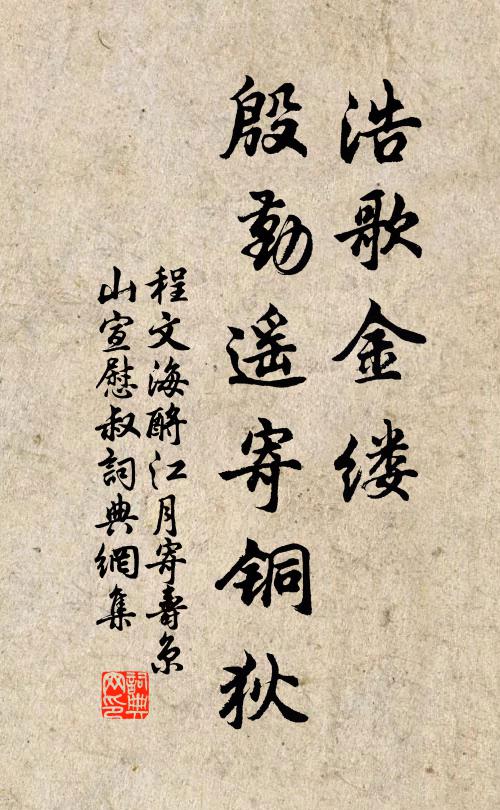 浩歌金缕
殷勤遥寄铜狄
程文海酹江月寄寿京
山宣慰叔詞典網集
詞典
网印